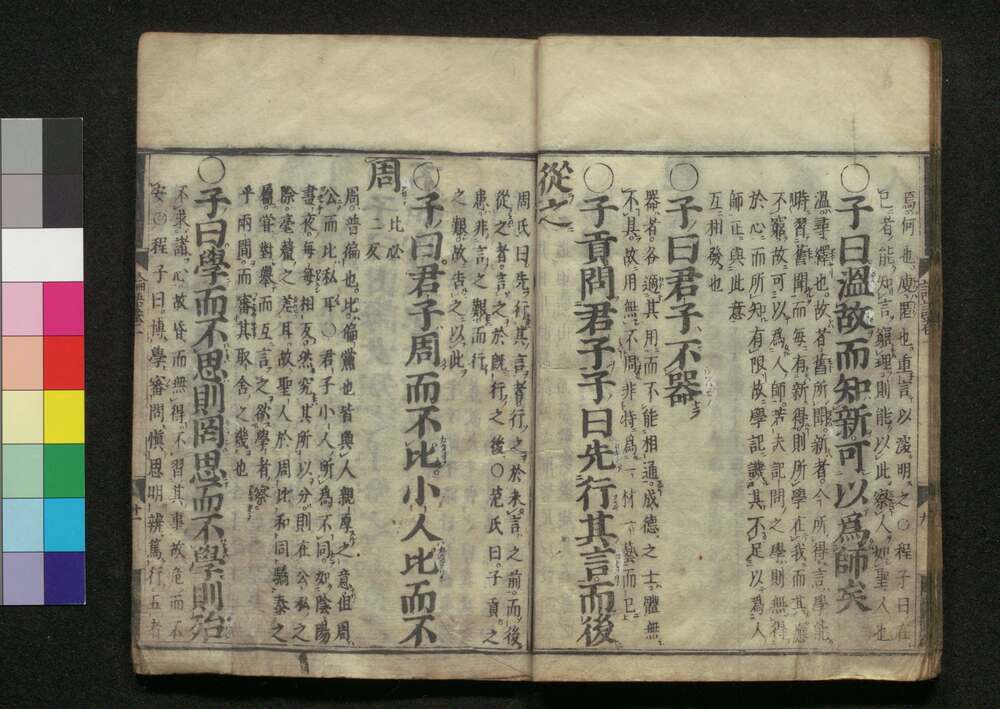 焉何也廋匿也重言以深明之○程子曰在
己者能知言窮理則能以此察人如聖人也
○子曰溫故而知新可以爲師矣
溫尋繹也故者舊所聞新者今所得言學能
時習舊聞而每有新得則所學在我而其應
不窮故可以爲人師若夫記問之學則無得
於心而所知有限故學記譏其不足以爲人
師正與此意
互相發也
○子曰君子不器
器者各適其用而不能相通成德之士體無
不具故用無不周非特爲一材一藝而已
○子貢問君子子曰先行其言而後
從之
周氏曰先行其言者行之於未言之前而後
從之者言之於既行之後○范氏曰子貢之
患非言之艱而行
之艱故告之以此
○子曰君子周而不比小人比而不
周
比必
二反
周普徧也比偏黨也皆與人親厚之意但周
公而比私耳○君子小人所爲不同如陰陽
晝夜每每相反然究其所以分則在公私之
際毫釐之差耳故聖人於周比和同驕泰之
屬常對舉而互言之欲學者察
乎兩間而審其取舍之幾也
○子曰學而不思則罔思而不學則殆
不求諸心故昏而無得不習其事故危而不
安○程子曰博學審問愼思明辨篤行五者